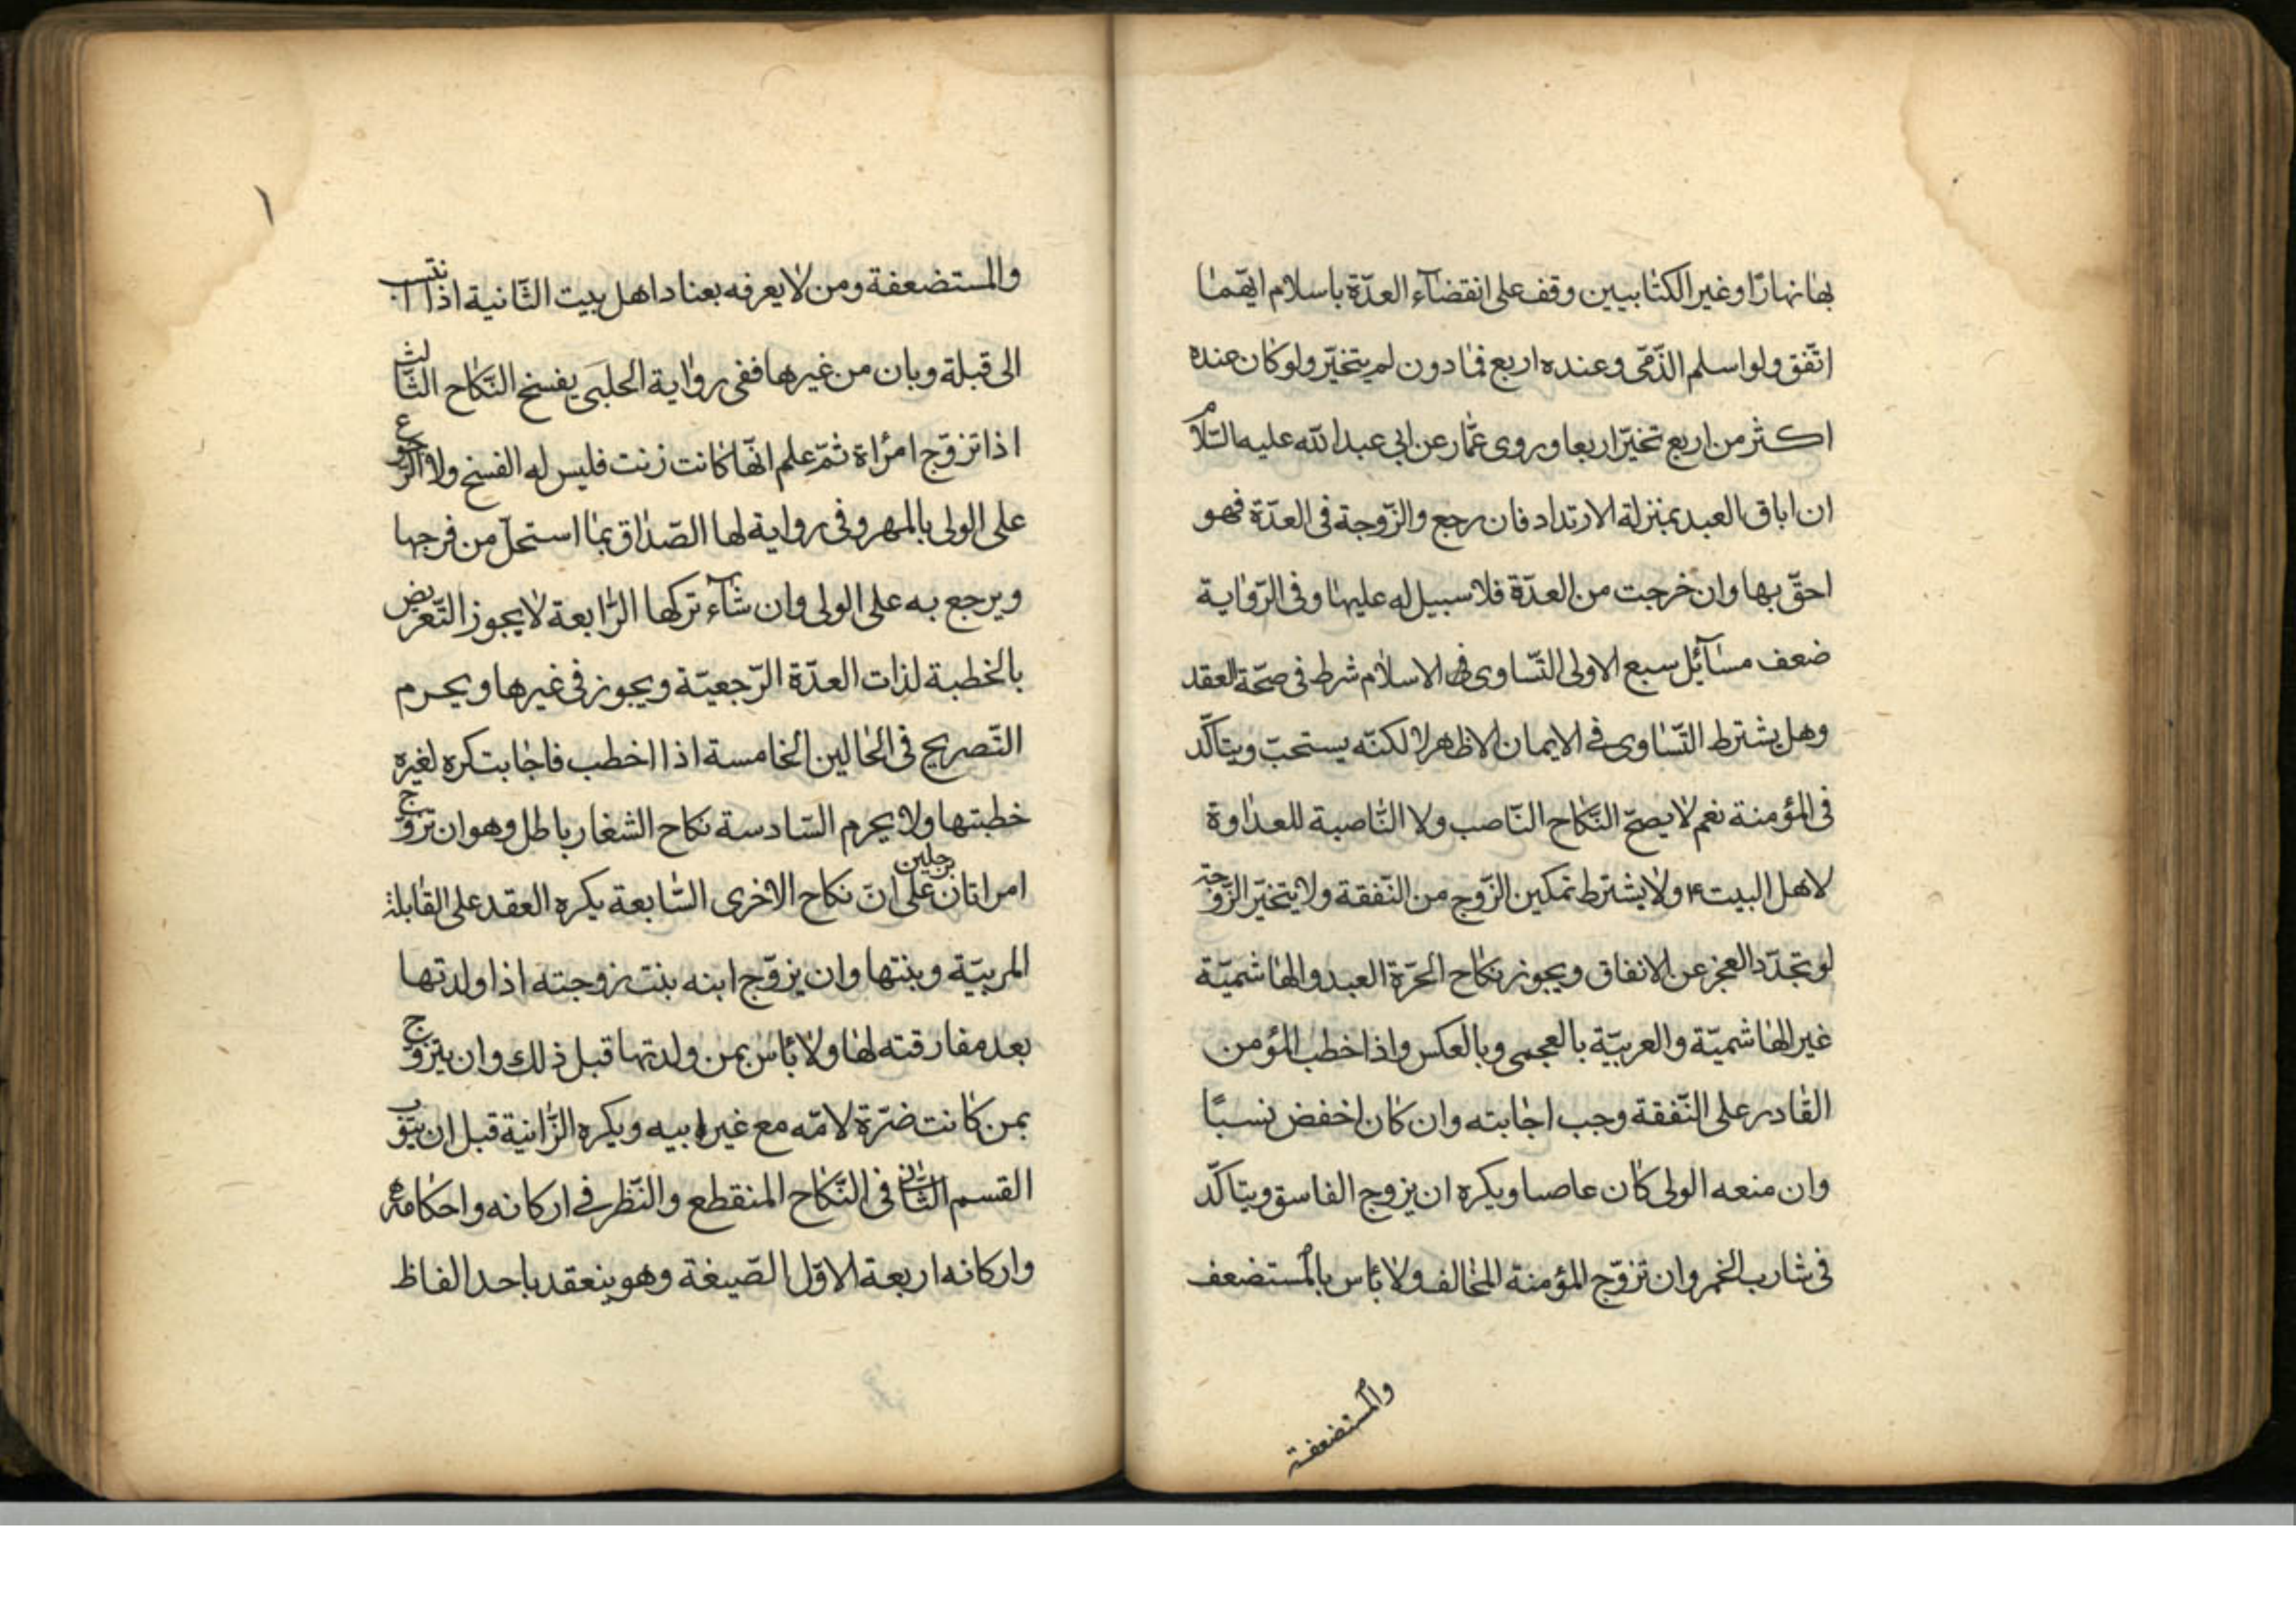 بها نهارًا وغير الكتابيين وقف على انقضآء العدّة باسلام ايّهما
اتّفق ولو اسلم الذّمّى وعنده اربع فمادون لم يتخيّر ولو كان عنده
اكثر من اربع تخيّر اربعا وروى عمّار عن ابى عبدالله عليه السّلام
ان اباق العبد بمنزلة الارتداد فان رجع والزّوجة فى العدّة فهو
احقّ بها وان خرجت من العدّة فلا سبيل له عليها وفى الرّواية
ضعف مسآئل سبع الاولى التّساوى فى الاسلام شرط فى صحّة العقد
وهل يشترط التّساوى فى الايمان الاظهر لا لكنّه يستحبّ ويتاكّد
فى المؤمنة نعم لا يصحّ النّكاح النّاصب ولا النّاصبة للعداوة
لاهل البيت ع ولا يشترط تمكين الزّوج من النّفقة ولا يتخيّر الزّوجة
لو تجدّد العجز عن الانفاق ويجوز نكاح الحرّة العبد والهاشميّة
غير الهاشميّة والعربيّة بالعجمى وبالعكس واذا خطب المؤمن
القادر على النّفقة وجب اجابته وان كان اخفض نسبًا
وان منعه الولى كان عاصيا ويكره ان يزوج الفاسق ويتاكّد
فى شارب الخمر وان تزوّج المؤمنة المخالف ولا بأس بالمستضعف
والمستضعفة
١
والمستضعفة ومن لا يعرفه بعناد اهل بيت الثّانية اذا انتسب
الى قبلة وبان من غيرها ففى رواية الحلبى يفسخ النّكاح الثّالث
اذا تزوّج امرأة ثمّ علم انّها كانت زنت فليس له الفسخ ولا الرّجوع
على الولى بالمهر وفى رواية لها الصّداق بما استحلّ من فرجها
ويرجع به على الولى وان شآء تركها الرّابعة لا يجوز التّعريض
بالخطبة لذات العدّة الرّجعيّة ويجوز فى غيرها ويحرم
التّصريح فى الحالين الخامسة اذا اخطب فاجابت كره لغيره
خطبتها ولا يحرم السّادسة نكاح الشغار باطل وهو ان تزوّج
امراتان برجلين على انّ نكاح الاخرى السّابعة يكره العقد على القابلة
المربيّة وبنتها وان يزوّج ابنه بنت زوجته اذا ولدتها
بعد مفارقته لها ولا بأس بمن ولدتها قبل ذلك وان يتزوّج
بمن كانت ضرّة لامّه مع غير ابيه ويكره الزّانية قبل ان يتوب
القسم الثّانى فى النّكاح المنقطع والنّظر فى اركانه واحكامه
واركانه اربعة الاوّل الصّيغة وهو ينعقد باحد الفاظ